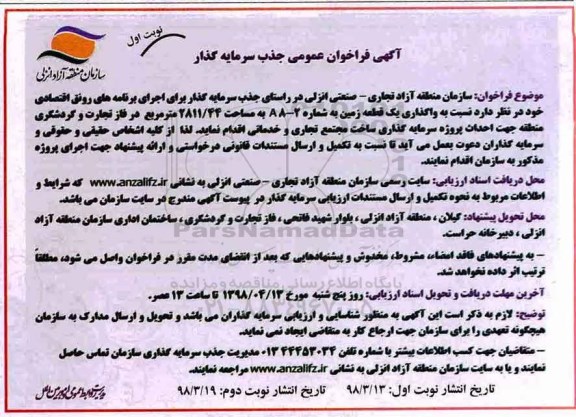 نوبت اول
سازمان منطقه آزاد انزلی
آگهی فراخوان عمومی جذب سرمایه گذار
موضوع فراخوان: سازمان منطقه آزاد تجاری – صنعتی انزلی در راستای جذب سرمایه گذار برای اجرای برنامه های رونق اقتصادی
خود در نظر دارد نسبت به واگذاری یک قطعه زمین به شماره ۲-A8 به مساحت ۲۸۱۱/۴۴ مترمربع در فاز تجارت و گردشگری
منطقه جهت احداث پروژه سرمایه گذاری ساخت مجتمع تجاری و خدماتی اقدام نماید. لذا از کلیه اشخاص حقیقی و حقوقی و
سرمایه گذاران دعوت بعمل می آید تا نسبت به تکمیل و ارسال مستندات قانونی درخواستی و ارائه پیشنهاد جهت اجرای پروژه
مذکور به سازمان اقدام نمایند.
محل دریافت اسناد ارزیابی: سایت رسمی سازمان منطقه آزاد تجاری – صنعتی انزلی به نشانی www.anzalifz.ir که شرایط و
اطلاعات مربوط به نحوه تکمیل و ارسال مستندات ارزیابی سرمایه گذار در پیوست آگهی مندرج در سایت سازمان می باشد.
محل تحویل پیشنهاد: گیلان ، منطقه آزاد انزلی ، بلوار شهید قائمی ، فاز تجارت و گردشگری ، ساختمان اداری سازمان منطقه آزاد
انزلی ، دبیرخانه حراست.
ParsNamadData
– به پیشنهادهای فاقد امضاء، مشروط، مخدوش و پیشنهادهایی که بعد از انقضای مدت مقرر در فراخوان واصل می شود، مطلقاً
ترتیب اثر داده نخواهد شد.
پایگاه اطلاع رسانی مناقصه و مزایده
آخرین مهلت دریافت و تحویل اسناد ارزیابی: روز پنج شنبه مورخ ۱۳۹۸/۰۴/۱۳ تا ساعت ۱۳ عصر.
توضیح: لازم به ذکر است این آگهی به منظور شناسایی و ارزیابی سرمایه گذاران می باشد و تحویل و ارسال مدارک به سازمان
هیچگونه تعهدی را برای سازمان جهت ارجاع کار به متقاضی ایجاد نمی نماید.
– متقاضیان جهت کسب اطلاعات بیشتر با شماره تلفن ۰۱۳۴۴۴۵۳۰۳۴ مدیریت جذب سرمایه گذاری سازمان تماس حاصل
نمایند و یا به سایت سازمان منطقه آزاد انزلی به نشانی www.anzalifz.ir مراجعه نمایند.
تاریخ انتشار نوبت اول: ۹۸/۳/۱۳ تاریخ انتشار نوبت دوم: ۹۸/۳/۱۹